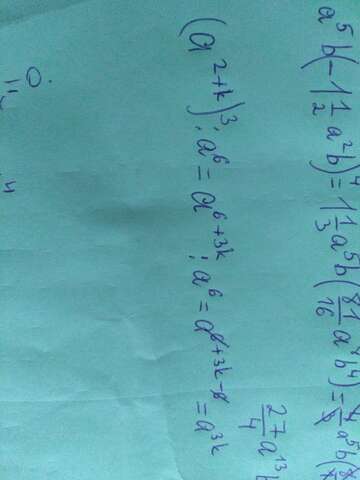 a⁵b(-1 1/2 a²b)⁴ = 1 1/3 a⁵b(81/16 a⁸b⁴) = 4/3 a⁵b(
27/4 a¹³b
(a^(2+k))³ : a⁶ = a^(6+3k) : a⁶ = a^(6+3k-6) = a^(3k)